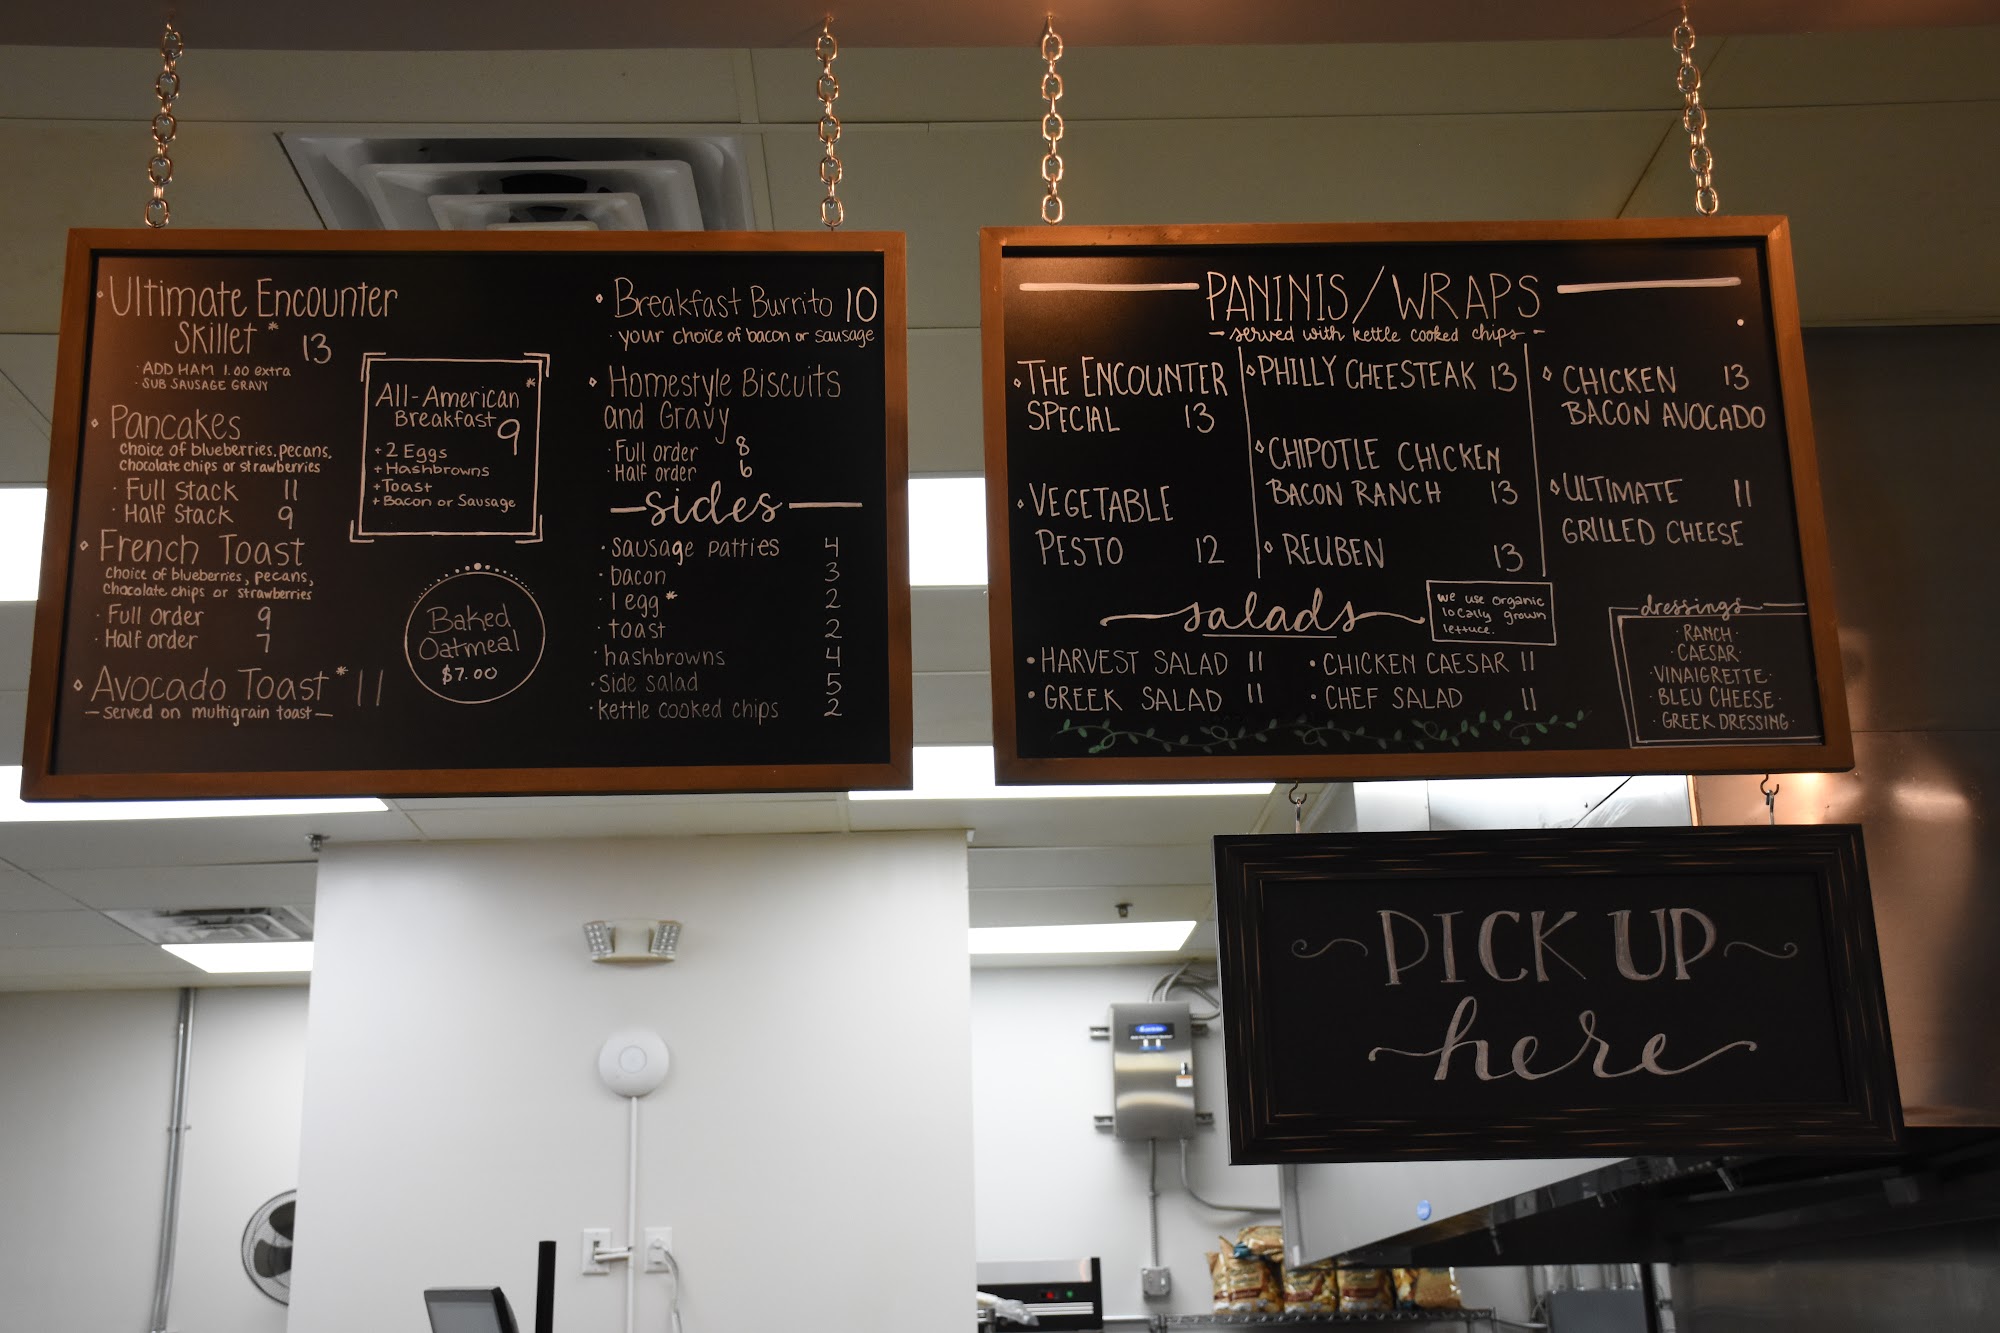 Ultimate Encounter
Skillet * 13
· ADD HAM 1.00 extra
· SUB SAUSAGE GRAVY
Pancakes
choice of blueberries, pecans,
chocolate chips or strawberries
· Full Stack 11
· Half Stack 9
French Toast
choice of blueberries, pecans,
chocolate chips or strawberries
· Full order 9
· Half order 7
Avocado Toast * 11
— served on multigrain toast —
All-American *
Breakfast 9
+ 2 Eggs
+ Hashbrowns
+ Toast
+ Bacon or Sausage
Baked
Oatmeal
$7.00
Breakfast Burrito 10
· your choice of bacon or sausage
Homestyle Biscuits
and Gravy
· Full order 8
· Half order 6
sides
· sausage patties 4
· bacon 3
· 1 egg * 2
· toast 2
· hashbrowns 4
· side salad 5
· kettle cooked chips 2
PANINIS/WRAPS
- served with kettle cooked chips -
THE ENCOUNTER
SPECIAL 13
VEGETABLE
PESTO 12
PHILLY CHEESTEAK 13
CHIPOTLE CHICKEN
BACON RANCH 13
REUBEN 13
CHICKEN 13
BACON AVOCADO
ULTIMATE 11
GRILLED CHEESE
salads
we use organic
locally grown
lettuce.
· HARVEST SALAD 11
· GREEK SALAD 11
· CHICKEN CAESAR 11
· CHEF SALAD 11
dressings
· RANCH ·
· CAESAR ·
· VINAIGRETTE ·
· BLEU CHEESE ·
· GREEK DRESSING ·
PICK UP
here